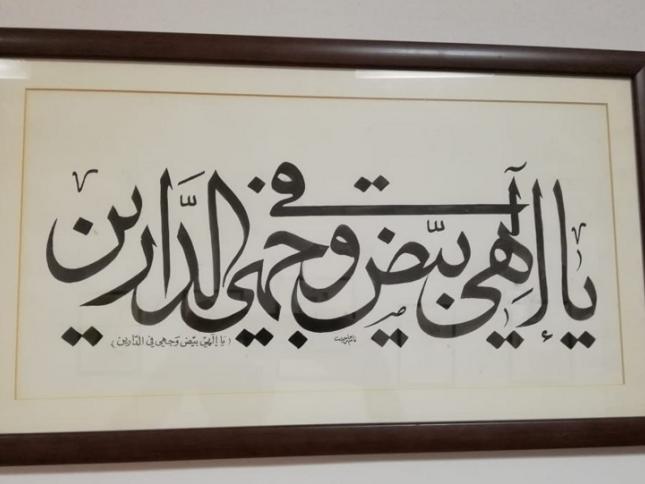 يا إلهي بيّض وجهي في الدّارين
(يا إلهي بيّض وجهي في الدّارين)